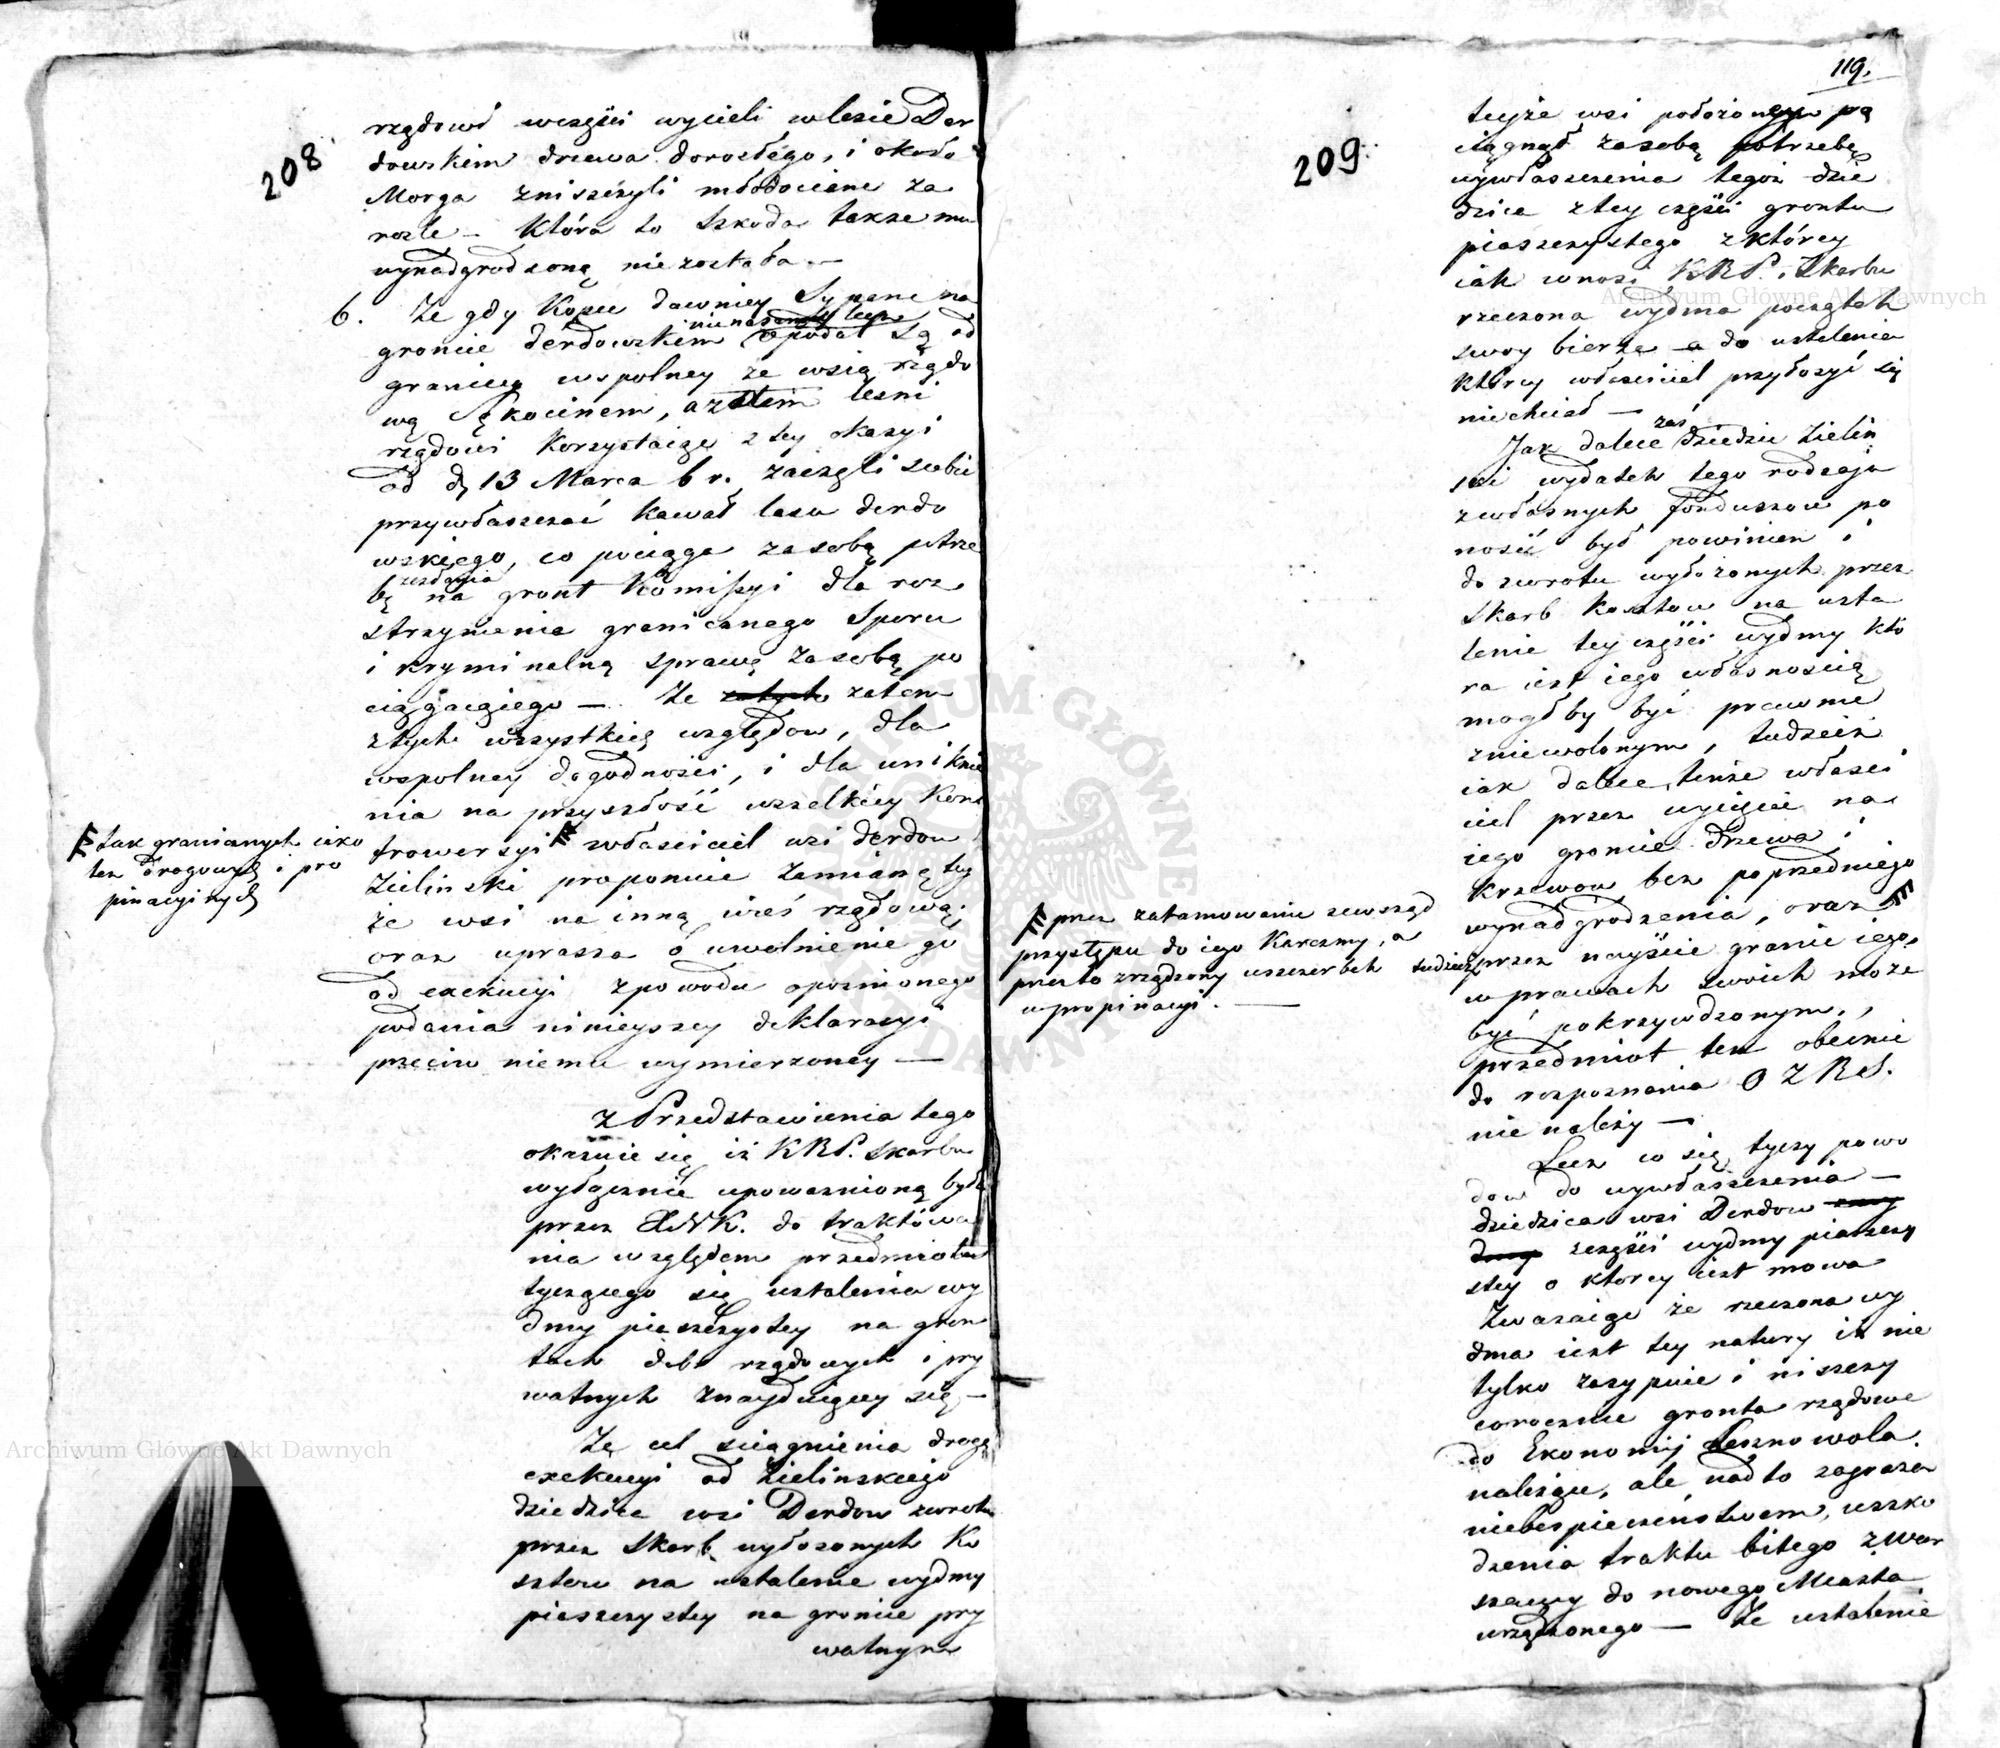 208
rządowi wczęści wycieli wlesie Der
dowskim drzewa dorosłego, i około
Morga zniszczyli młodociane za
rośle – która to szkoda także mu
wynadgrodzoną niezostała –
6. Że gdy kopce dawniey Sypane na
nienasamey lecz
groncie derdowskim opodal są od
granicy wspolney ze wsią rządo
wą Sękocinem, azatem leśni
rządowi korzystaiąc ztey okazyi
od d. 13 Marca b r. zaczęli sobie
przywłaszczać kawał lasu derdo
wskiego, co pociąga zasobą potrze
zesłania
bę na gront Kommissyi dla roz
strzygnienia granicznego Sporu
i kryminalną sprawę zasobą po
ciągaiącego – Że zatem
ztych wszystkich względow, dla
wspolney dogodności, i dla uniknie
nia na przyszłość wszelkiey kon
trowersyi właściciel wsi derdow
Zielinski proponuie zamianę tey
że wsi na inną wieś rządową;
oraz uprasza o uwolnienie go
od exekucyi zpowodu opoznionego
podania ninieyszey deklaracyi
przeciw niemu wymierzoney —
tak granicznych iako
też drogowych i pro
pinacyinych
z Przedstawienia tego
okazuie się iż KRP. Skarbu
wyłącznie upoważnioną była
przez XNK. do traktowa
nia względem przedmiotu
tyczącego się ustalenia wy
dmy piaszczystey na gron
tach dobr rządowych i pry
watnych znayduiącey się –
Że cel sciągnienia drogą
exekucyi od Zielinskiego
dziedzica wsi Derdow zwrotu
przez Skarb wyłożonych Ko
sztow na ustalenie wydmy
piaszczystey na groncie pry
watnym
119.
209
teyże wsi położonym po
ciągnął zasobą potrzebę
wywłaszczenia tegoż dzie
dzica ztey części grontu
piaszczystego zktórey
iak wnosi KRP. i Skarbu
rzeczona wydma początek
swoy bierze a do ustalenia
którey właściciel przyłożyć się
niechciał –
zaś
Jak dalece dziedzic Zielin
ski wydatek tego rodzaju
zwłasnych funduszow po
nosić był powinien i
do zwrotu wyłożonych przez
Skarb kosztow na usta
lenie tey części wydmy któ
ra iest iego własnością
mogłby być prawnie
zniewolonym, tudzież
iak dalece tenże właści
ciel przez wycięcie na
iego groncie drzewa i
krzewow bez poprzedniego
wynadgrodzenia, oraz
tudzież przez nayście granic iego,
w prawach swoich może
być pokrzywdzonym,
przedmiot ten obecnie
do rozpoznania OZRS.
nie należy –
przez zatamowanie zewsząd
przystępu do iego Karczmy, a
przez to zrządzony uszczerbek
w propinacyi. —
Lecz co się tyczy powo
dow do wywłaszczenia –
dziedzica wsi Derdow
zczęści wydmy piaszczy
stey o ktorey iest mowa
Zważaiąc że rzeczona wy
dma iest tey natury iż nie
tylko zasypuie i niszczy
corocznie gronta rządowe
do Ekonomij Lesznowola
należące, ale nadto zagraża
niebespieczeństwem, uszko
dzenia traktu bitego z War
szawy do nowego Miasta
urządzonego – Że ustalenie
Archiwum Główne Akt Dawnych
Archiwum Główne Akt Dawnych
ARCHIWUM GŁÓWNE AKT DAWNYCH